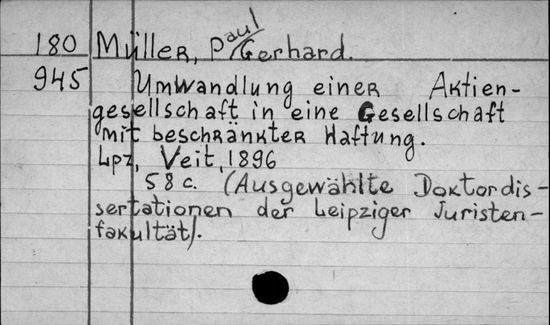 180 Müller, Paul Gerhard.
945 Umwandlung einer Aktien-
gesellschaft in eine Gesellschaft
mit beschränkter Haftung.
Lpz, Veit, 1896
58 c. (Ausgewählte Doktordis-
sertationen der Leipziger Juristen-
fakultät).